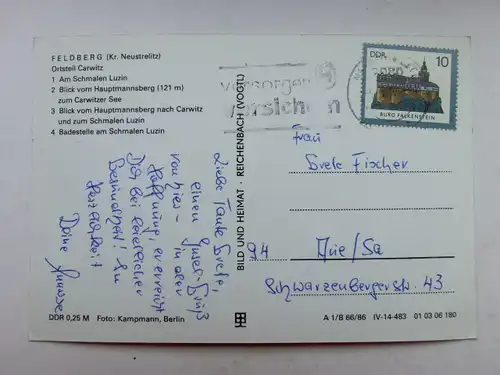 FELDBERG (Kr. Neustrelitz)
Ortsteil Carwitz
1 Am Schmalen Luzin
2 Blick vom Hauptmannsberg (121 m)
zum Carwitzer See
3 Blick vom Hauptmannsberg nach Carwitz
und zum Schmalen Luzin
4 Badestelle am Schmalen Luzin
Liebe Tante Grete,
einen Insel-Gruß
von hier - in der
Hoffnung, er erreicht
Dich bei
Gesundheit! In
Herzlichkeit
Deine
DDR 0,25 M Foto: Kampmann, Berlin
BILD UND HEIMAT · REICHENBACH (VOGTL)
vorsorgen
versichern
DDR 10
BURG FALKENSTEIN
Frau
Grete Fischer
94 Aue/Sa
Schwarzenbergerstr. 43
A 1/B 66/86 IV-14-483 01 03 06 180